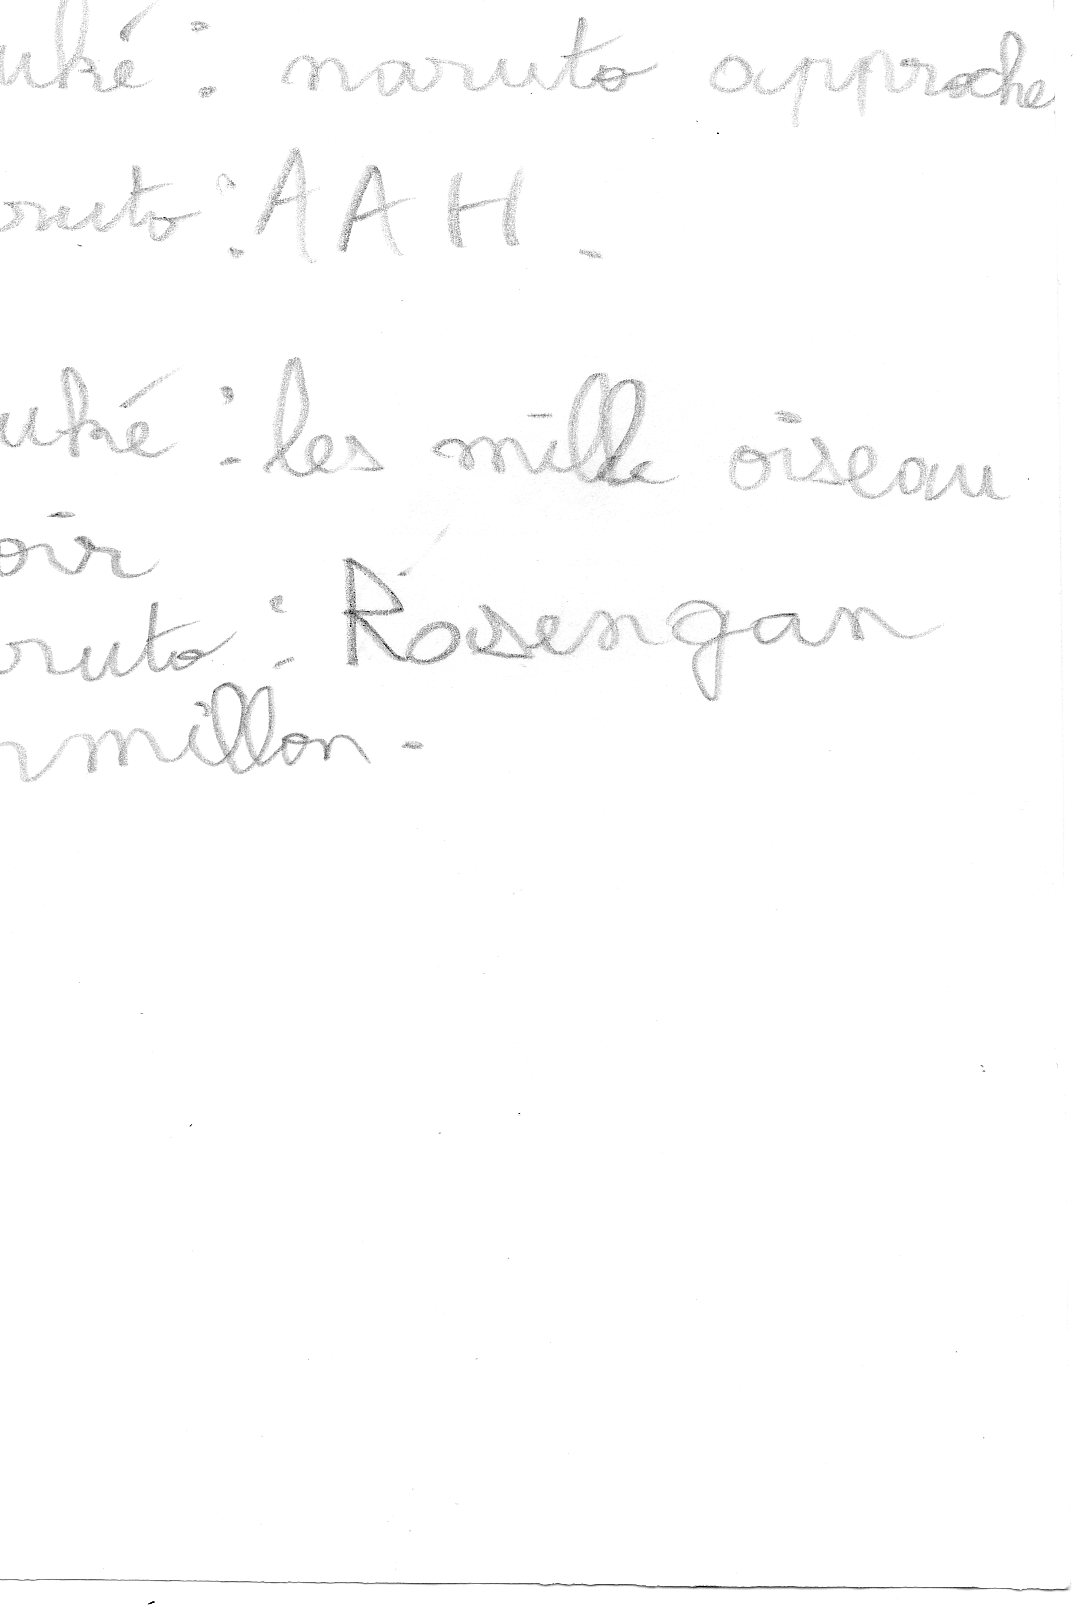 uké : naruto approche
ruto : AAH.
uké : les mille oiseau
oir
ruto : Rosengan
rmillon.